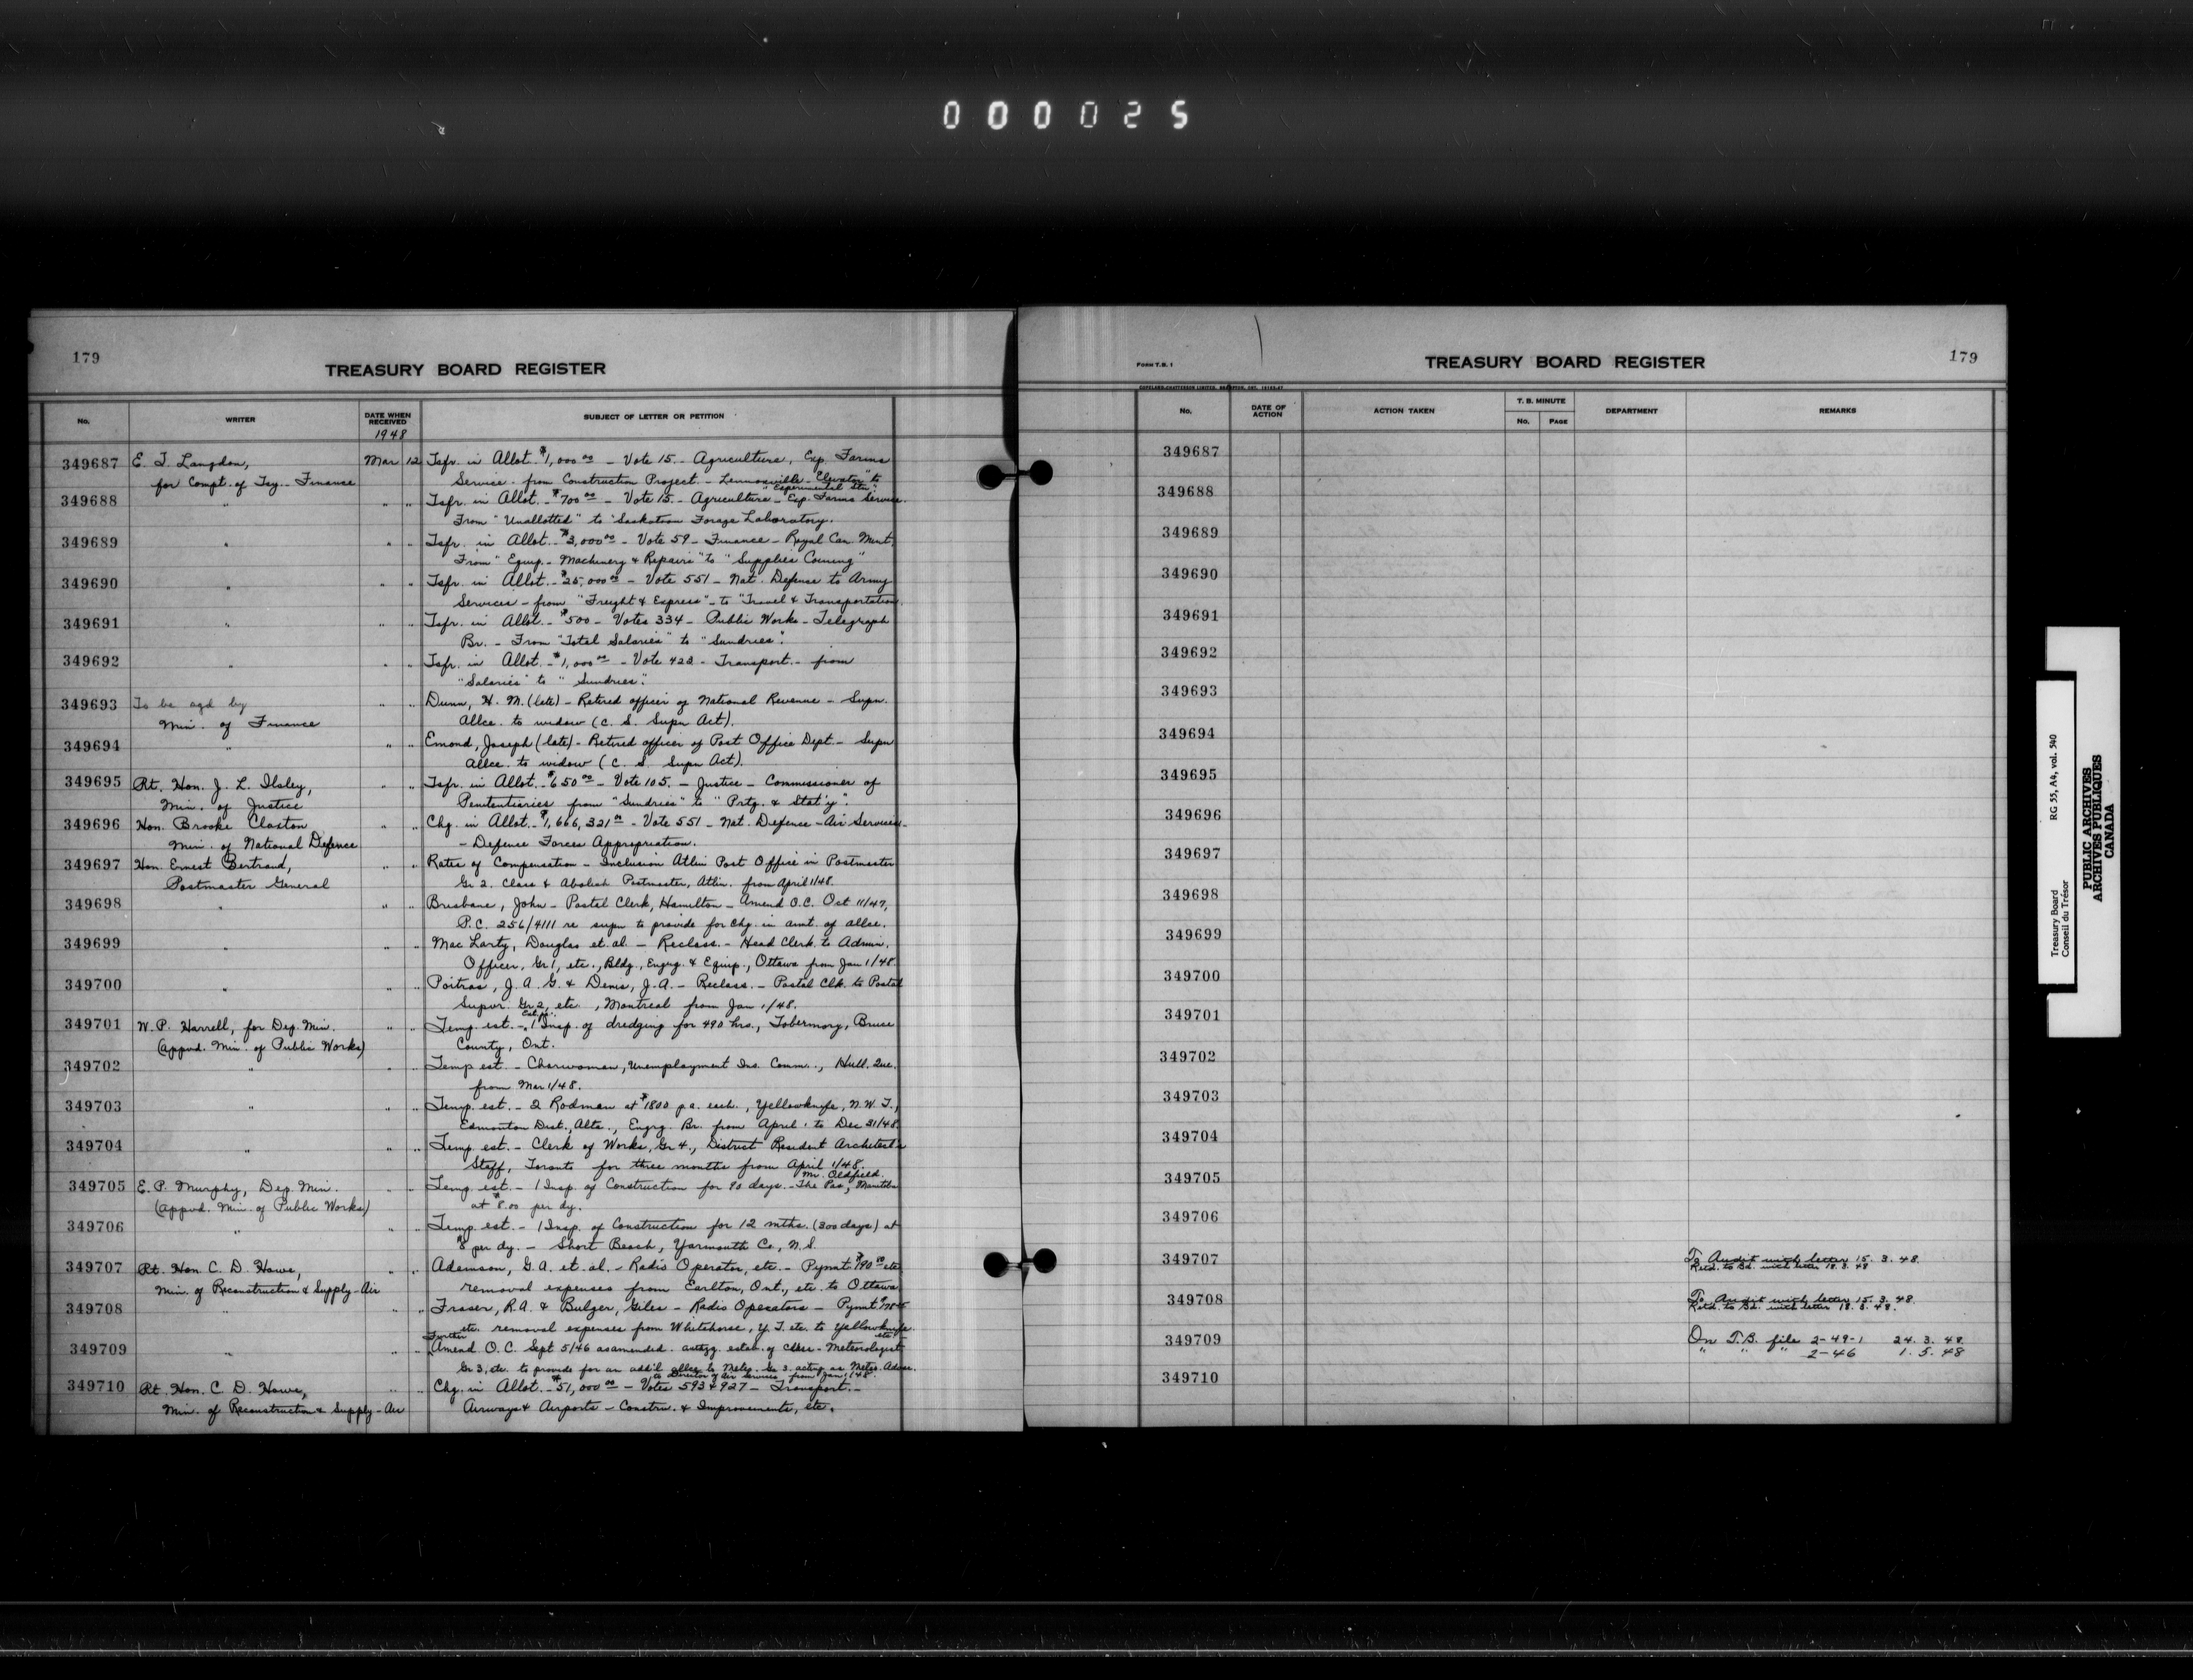 000025
179
TREASURY BOARD REGISTER
No.
WRITER
DATE WHEN RECEIVED
1948
SUBJECT OF LETTER OR PETITION
349687 E. T. Langdon, Mar 12 Tsfr. in Allot. $1,000 00 - Vote 15 - Agriculture, Exp. Farms
for Compt. of Tsy. - Finance Service - from Construction Project - Lennoxville - Elevator" to
"Experimental Stn".
349688 " " " Tsfr. in Allot. - $700 00 - Vote 15 - Agriculture - Exp. Farms Service.
From "Unallotted" to "Saskatoon Forage Laboratory.
349689 " " " Tsfr. in Allot. - $3,000 00 - Vote 59 - Finance - Royal Can. Mint,
From "Equip. - Machinery & Repairs" to "Supplies Coining"
349690 " " " Tsfr. in Allot. - $25,000 00 - Vote 551 - Nat. Defense to Army
Services - from "Freight & Express" - to "Travel & Transportation.
349691 " " " Tsfr. in Allot. - $500 - Votes 334 - Public Works - Telegraph
Br. - From "Total Salaries" to "Sundries".
349692 " " " Tsfr. in Allot. - $1,000 00 - Vote 422 - Transport. - from
"Salaries" to "Sundries".
349693 To be sgd by " " Dunn, H. M. (late) - Retired officer of National Revenue - Supn.
Min. of Finance Allce. to widow (C. S. Supn Act).
349694 " " " Emond, Joseph (late) - Retired officer of Post Office Dept. - Supn
Allce. to widow (C. S. Supn Act).
349695 Rt. Hon. J. L. Ilsley, " " Tsfr. in Allot. - $650 00 - Vote 105. - Justice - Commissioner of
Min. of Justice Penitentiaries from "Sundries" to "Prtg. & Stat'y".
349696 Hon. Brooke Claxton " " Chg. in Allot. - $1,666,321 00 - Vote 551 - Nat. Defence - Air Services -
Min. of National Defence - Defence Forces Appropriation.
349697 Hon. Ernest Bertrand, " " Rates of Compensation - Inclusion Atlin Post Office in Postmaster
Postmaster General Gr 2. Class & Abolish Postmaster, Atlin. from April 1/48.
349698 " " " Brisbane, John - Postal Clerk, Hamilton - Amend O.C. Oct 11/47,
P.C. 256/4111 re supn to provide for chg. in amt. of allce.
349699 " " " Mac Larty, Douglas et. al - Reclass. - Head Clerk to Admin.
Officer, Gr 1, etc., Bldg., Engrg. & Equip., Ottawa from Jan 1/48.
349700 " " " Poitras, J. A. G. & Denis, J. A. - Reclass. - Postal Clk. to Postal
Supvr. Gr 2, etc., Montreal from Jan 1/48.
349701 W. P. Harrell, for Dep. Min. " " Temp. est. - 1 Insp. of dredging for 490 hrs., Tobermory, Bruce
(appvd. Min. of Public Works) County, Ont.
349702 " " " Temp est. - Charwoman, Unemployment Ins. Comm., Hull, Que.
from Mar 1/48.
349703 " " " Temp. est. - 2 Rodman at $1800 p.a. each., Yellowknife, N.W.T.,
Edmonton Dist., Alta., Engrg. Br. from April 1 to Dec 31/48
349704 " " " Temp. est. - Clerk of Works, Gr 4., District Resident Architect's
Staff, Toronto for three months from April 1/48.
349705 E. P. Murphy, Dep. Min. " " Temp. est. - 1 Insp. of Construction for 90 days. - The Pas, Manitoba
Mr. Oldfield
(appvd. Min. of Public Works) at $8.00 per dy.
349706 " " " Temp. est. - 1 Insp. of Construction for 12 mths. (300 days) at
$8 per dy. - Short Beach, Yarmouth Co., N.S.
349707 Rt. Hon. C. D. Howe, " " Adamson, G. A. et. al. - Radio Operator, etc. - Pymt. $190 00 etc
Min. of Reconstruction & Supply - Air removal expenses from Earlton, Ont., etc. to Ottawa
349708 " " " Fraser, R.A. & Bulger, Giles - Radio Operators - Pymt.
etc. removal expenses from Whitehorse, Y. T. etc. to Yellowknife etc.
Further
349709 " " " Amend O. C. Sept 5/46 as amended. authzg. estab. of class - Meteorologist
Gr 3, etc. to provide for an add'l allce to Meteo. Gr 3. acting as Meteo. Adviser
to Director of Air Services - from Jan 1/48.
349710 Rt. Hon. C. D. Howe, " " Chg. in Allot. - $51,000 00 - Votes 593 & 927 - Transport. -
Min. of Reconstruction & Supply - Air Airways & Airports - Constrn. & Improvements, etc.
FORM T.B. 1
TREASURY BOARD REGISTER
179
No.
DATE OF ACTION
ACTION TAKEN
T. B. MINUTE
No.
PAGE
DEPARTMENT
REMARKS
349687
349688
349689
349690
349691
349692
349693
349694
349695
349696
349697
349698
349699
349700
349701
349702
349703
349704
349705
349706
349707 To Audit with letter 15. 3. 48.
Retd. to Bd. with letter 18. 3. 48
349708 To Audit with letter 15. 3. 48.
Retd. to Bd. with letter 18. 3. 48.
349709 On T.B. file 2-49-1 24. 3. 48.
" " " 2-46 1. 5. 48
349710
Treasury Board
Conseil du Trésor
RG 55, A4, vol. 540
PUBLIC ARCHIVES
ARCHIVES PUBLIQUES
CANADA